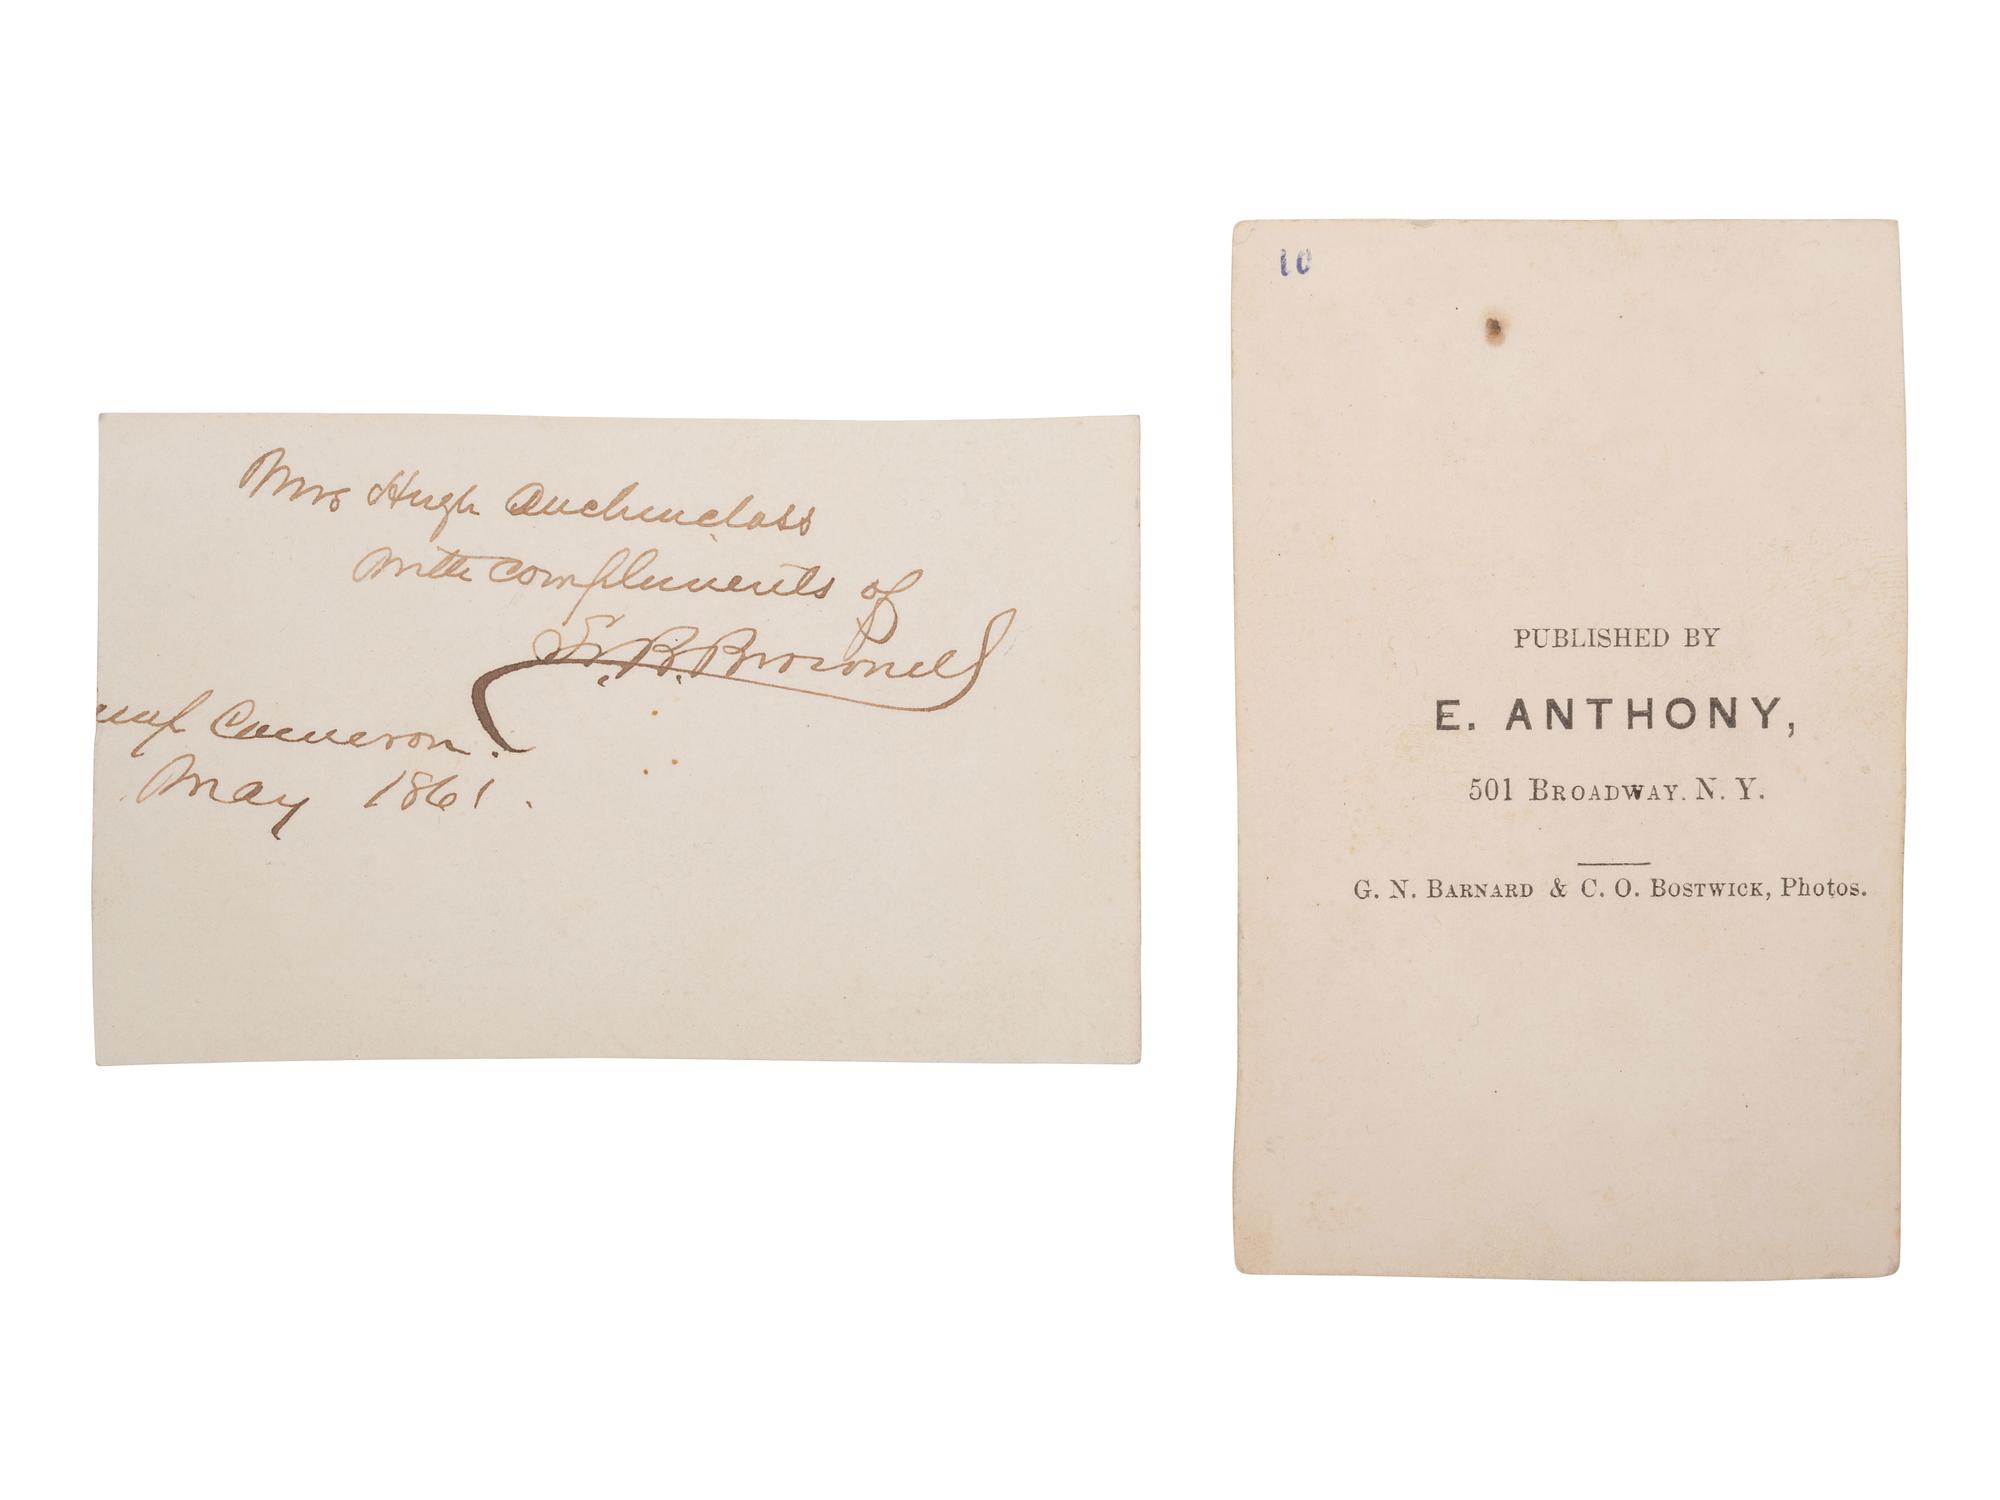 Mrs Hugh Auchincloss
with compliments of
S. B. Brownell
Cameron.
May 1861.
10
PUBLISHED BY
E. ANTHONY,
501 BROADWAY. N. Y.
G. N. BARNARD & C. O. BOSTWICK, Photos.